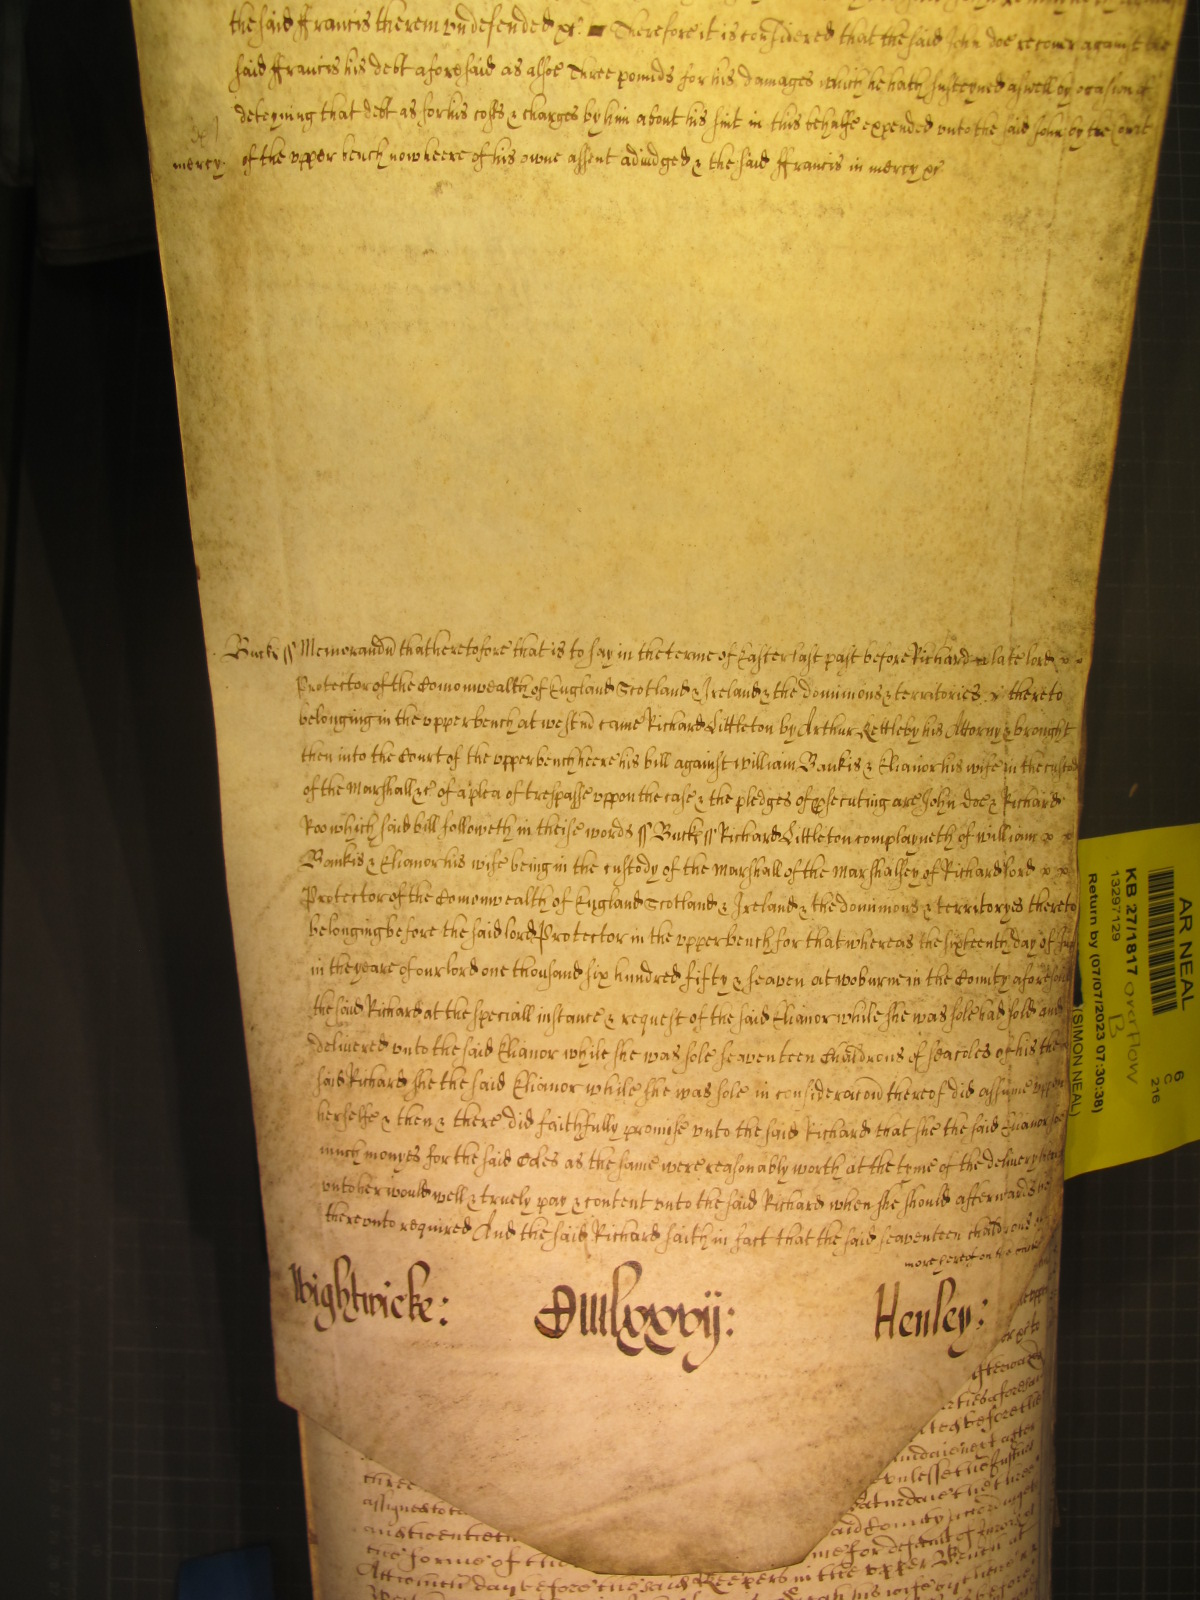 the said ffrancis therein undefended &c. Therefore it is considered that the said John doe recover against the
said ffrancis his debt aforesaid as alsoe Three pounds for his damages which he hath susteyned aswell by occasion of
deteyning that debt as for his costs & charges by him about his suit in this behalfe expended unto the said John by the Court
mercy. of the upper bench now heere of his owne assent adiudged & the said ffrancis in mercy &c
Bucks ss Memorandu that heretofore that is to say in the terme of Easter last past before Richard late lord
Protector of the Comonwealth of England Scotland & Ireland & the dominions & territories thereto
belonging in the upper bench at westm came Richard Littleton by Arthur Kettleby his Attorny & brought
then into the Court of the upper bench heere his bill against William Bankis & Elianor his wife in the custody
of the Marshall &c of a plea of trespasse uppon the case & the pledges of psecuting are John Doe & Richard
Roo which said bill followeth in theise words ss Bucks ss Richard Littleton complayneth of William
Bankis & Elianor his wife being in the custody of the Marshall of the Marshalsey of Richard lord
Protector of the Comonwealth of England Scotland & Ireland & the dominions & territoryes thereto
belonging before the said lord Protector in the upper bench for that whereas the sixteenth day of
in the yeare of our lord one thousand six hundred fifty & seaven at woburne in the County aforesaid
the said Richard at the speciall instance & request of the said Elianor while she was sole had sold and
delivered unto the said Elianor while she was sole seaventeen Chaldrons of seacoles of his the
said Richard she the said Elianor while she was sole in consideracon thereof did assume uppon
herselfe & then & there did faithfully promise unto the said Richard that she the said Elianor soe
much monyes for the said Coles as the same were reasonably worth at the tyme of the delivery
unto her would well & truely pay & content unto the said Richard when she should afterwards be
thereunto required And the said Richard saith in fact that the said seaventeen chaldrons
more hereof on the
Wightwicke: Henley:
AR NEAL
KB 27/1817 overflow
B
13297129
Return by (07/07/2023 07:30:38)
(SIMON NEAL)
6
C
216
Afterwards
before the
unlesse the Justic
three
assigned to
the forme of the me for default of
Attorney day before the said Keepers in the upper Bench at
his wife